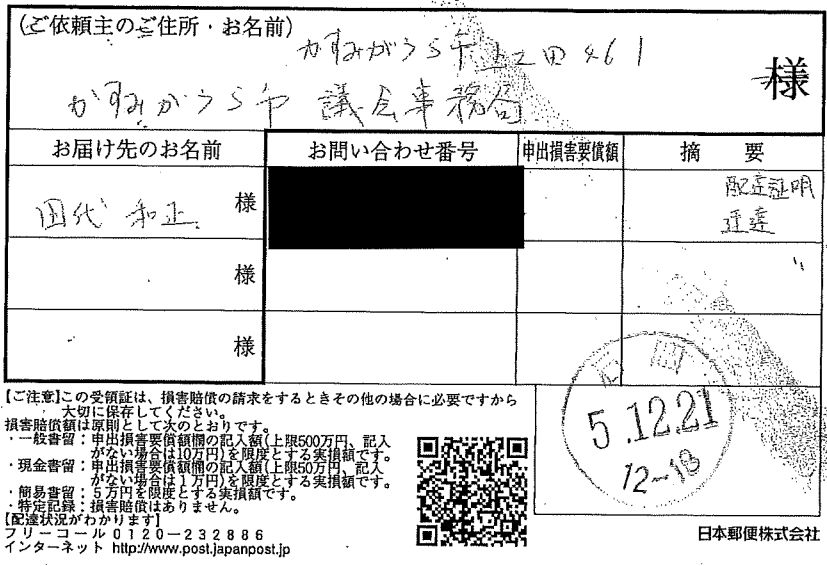 (ご依頼主のご住所・お名前)
かすみがうら市上土田461
かすみがうら市 議会事務局
様
お届け先のお名前 お問い合わせ番号 申出損害要償額 摘 要
田代 和正 様 配達証明
速達
様 〃
様
【ご注意】この受領証は、損害賠償の請求をするときその他の場合に必要ですから
大切に保存してください。
損害賠償額は原則として次のとおりです。
・一般書留：申出損害要償額欄の記入額(上限500万円、記入
がない場合は10万円)を限度とする実損額です。
・現金書留：申出損害要償額欄の記入額(上限50万円、記入
がない場合は1万円)を限度とする実損額です。
・簡易書留：5万円を限度とする実損額です。
・特定記録：損害賠償はありません。
【配達状況がわかります】
フリーコール 0120-232886
インターネット http://www.post.japanpost.jp
5.12.21
12-18
日本郵便株式会社